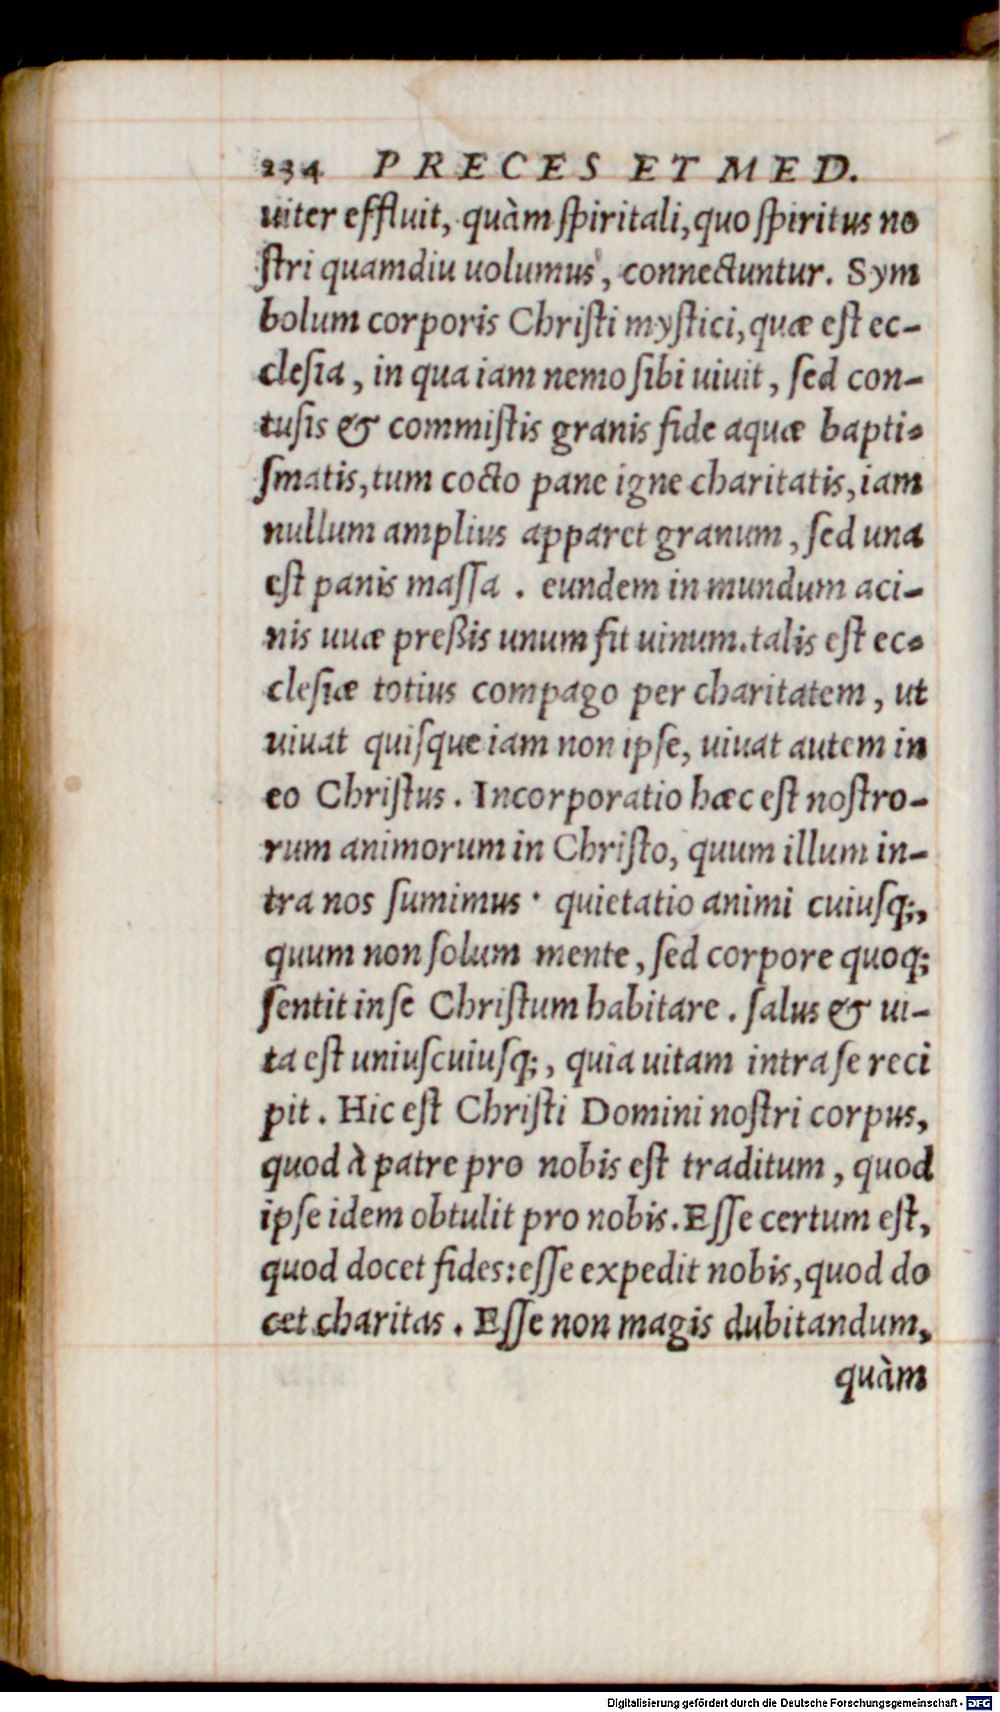 234 PRECES ET MED.
uiter effluit, quàm ſpiritali, quo ſpiritus no
ſtri quamdiu uolumus, connectuntur. Sym
bolum corporis Chriſti myſtici, quæ eſt ec-
cleſia, in qua iam nemo ſibi uiuit, ſed con-
tuſis & commiſtis granis fide aquæ bapti-
ſmatis, tum cocto pane igne charitatis, iam
nullum amplius apparet granum, ſed una
eſt panis maſſa. eundem in mundum aci-
nis uuæ preßis unum fit uinum. talis eſt ec-
cleſiæ totius compago per charitatem, ut
uiuat quiſque iam non ipſe, uiuat autem in
eo Chriſtus. Incorporatio hæc eſt noſtro-
rum animorum in Chriſto, quum illum in-
tra nos ſumimus· quietatio animi cuiuſq;,
quum non ſolum mente, ſed corpore quoq;
ſentit in ſe Chriſtum habitare. ſalus & ui-
ta eſt uniuſcuiuſq;, quia uitam intra ſe reci
pit. Hic eſt Chriſti Domini noſtri corpus,
quod à patre pro nobis eſt traditum, quod
ipſe idem obtulit pro nobis. Eſſe certum eſt,
quod docet fides: eſſe expedit nobis, quod do
cet charitas. Eſſe non magis dubitandum,
quàm
Digitalisierung gefördert durch die Deutsche Forschungsgemeinschaft - DFG